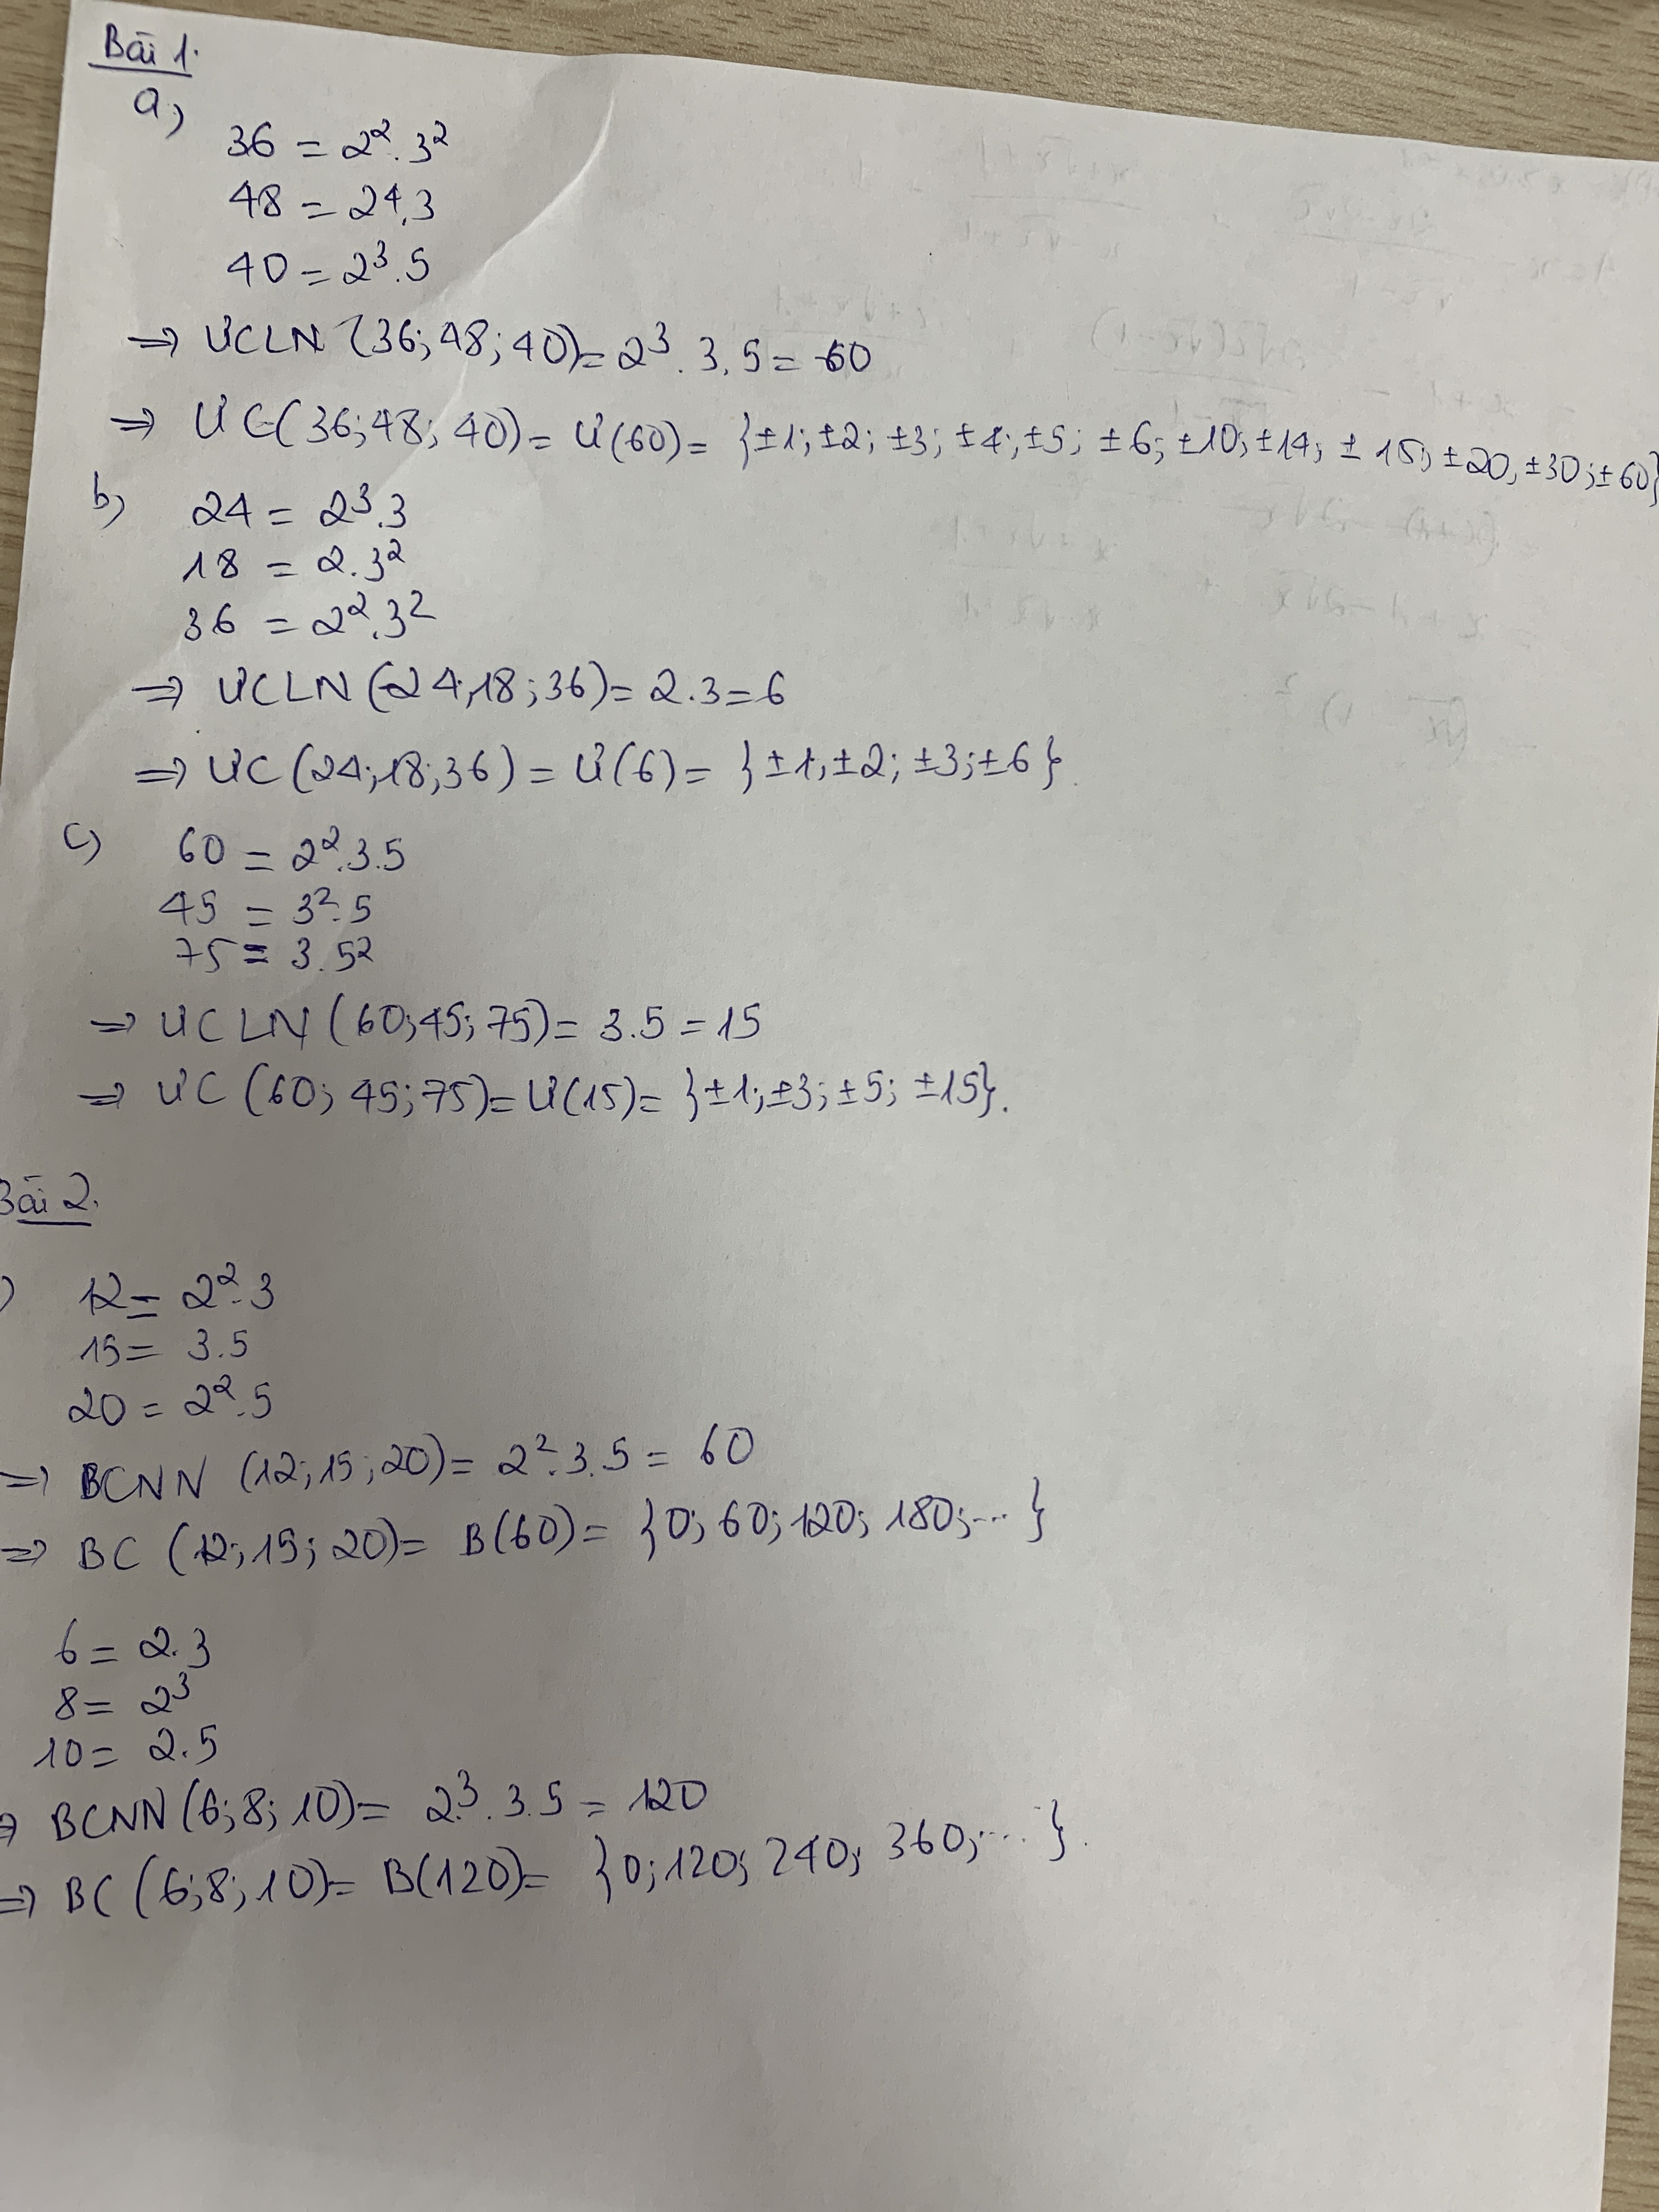 Bài 1.
a,
36 = 2². 3²
48 = 2⁴.3
40 = 2³.5
=> ƯCLN (36; 48; 40) = 2³. 3. 5 = 60
=> ƯC (36; 48; 40) = Ư(60) = {±1; ±2; ±3; ±4; ±5; ±6; ±10; ±14; ±15; ±20, ±30; ±60}
b, 24 = 2³.3
18 = 2.3²
36 = 2².3²
=> ƯCLN (24;18;36) = 2.3 = 6
=> ƯC (24;18;36) = Ư(6) = {±1, ±2; ±3; ±6}.
c, 60 = 2².3.5
45 = 3².5
75 = 3.5²
=> ƯCLN (60;45;75) = 3.5 = 15
=> ƯC (60; 45; 75) = Ư(15) = {±1; ±3; ±5; ±15}.
Bài 2.
) 12 = 2².3
15 = 3.5
20 = 2².5
=> BCNN (12;15;20) = 2².3.5 = 60
=> BC (12;15;20) = B(60) = {0; 60; 120; 180; ...}
6 = 2.3
8 = 2³
10 = 2.5
=> BCNN (6; 8; 10) = 2³.3.5 = 120
=> BC (6;8;10) = B(120) = {0; 120; 240; 360; ...}.